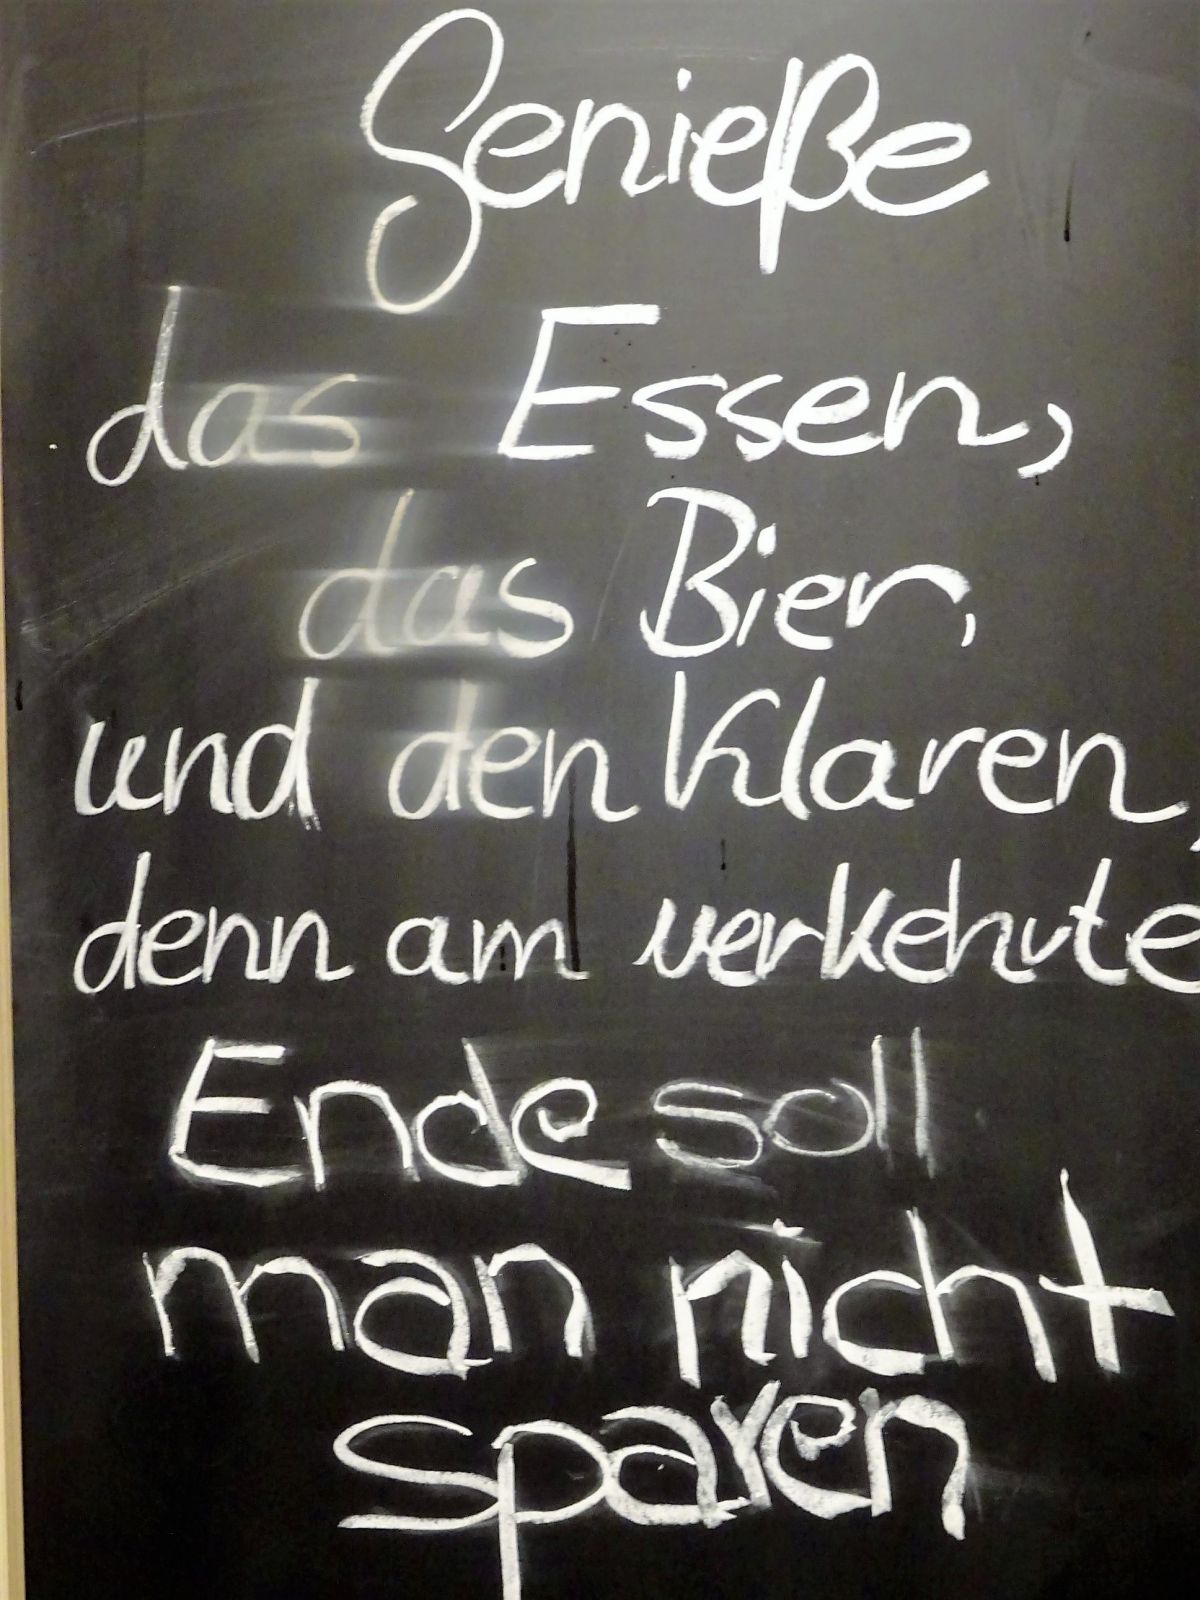 Genieße
das Essen,
das Bier,
und den Klaren,
denn am verkehrte
Ende soll
man nicht
sparen